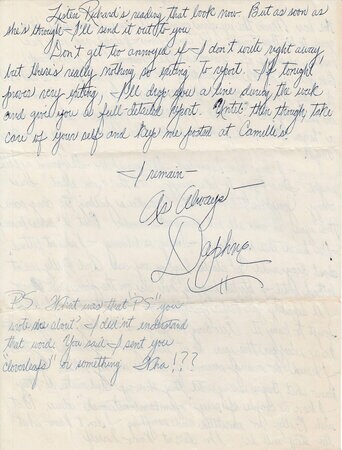 Listen Richard's reading that book now. But as soon as
she's through – I'll send it out to you
Don't get too annoyed if I don't write right away
but there's really nothing so exciting to report. If tonight
proves very exciting, I'll drop you a line during the week
and give you a full-detailed report. "Until" then though, take
care of your self and keep me posted at Camille's.
I remain –
As Always –
Daphne
P.S. What was that "PS" you
wrote about? I didn't understand
that word. You said I sent you
"cloverleafs" or something
!??